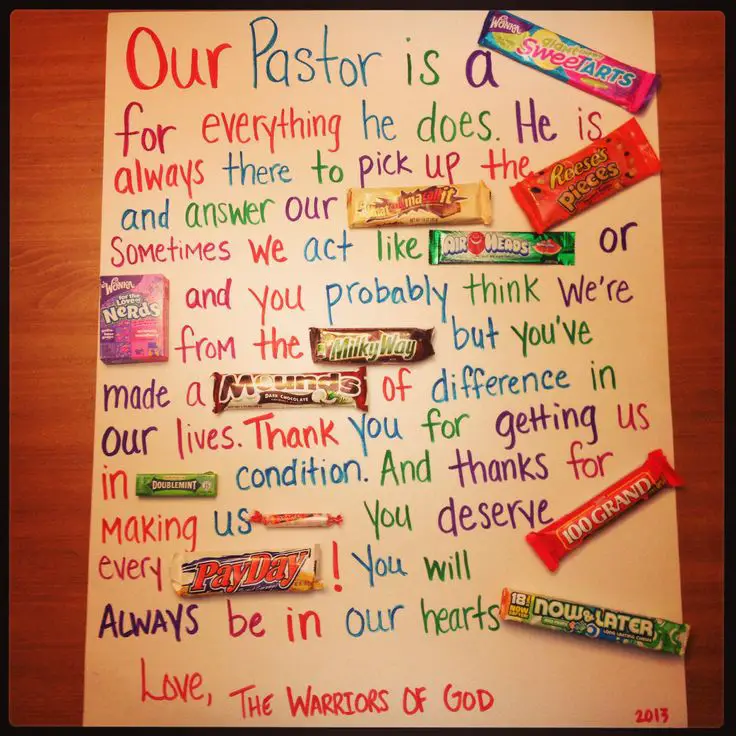 Our Pastor is a WONKA giant chewy SWEETARTS
for everything he does. He is
always there to pick up the REESE'S pieces
and answer our whatchamacallit
Sometimes we act like AIRHEADS or
WONKA for the Love of NERDS and you probably think we're
from the Milky Way but you've
made a Mounds DARK CHOCOLATE of difference in
our lives. Thank you for getting us
in DOUBLEMINT condition. And thanks for
making us You deserve 100 GRAND
every PayDay ! You will
ALWAYS be in our hearts 18 NOW AND LATER LONG LASTING CHEWS
Love, THE WARRIORS OF GOD
2013